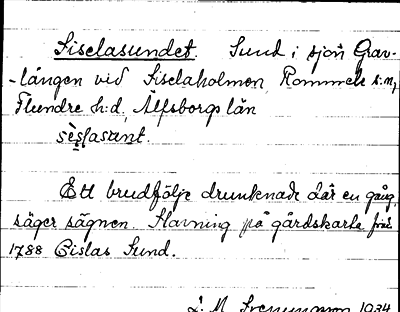 Siselasundet. Sund i sjön Grav-
-lången vid Siselaholmen, Rommele s:n,
Flundre h:d, Älfsborgs län
sèslasunt.
Ett brudfölje drunknade där en gång,
säger sägnen. Stavning på gårdskarta från
1788 Cislas Sund.
1934